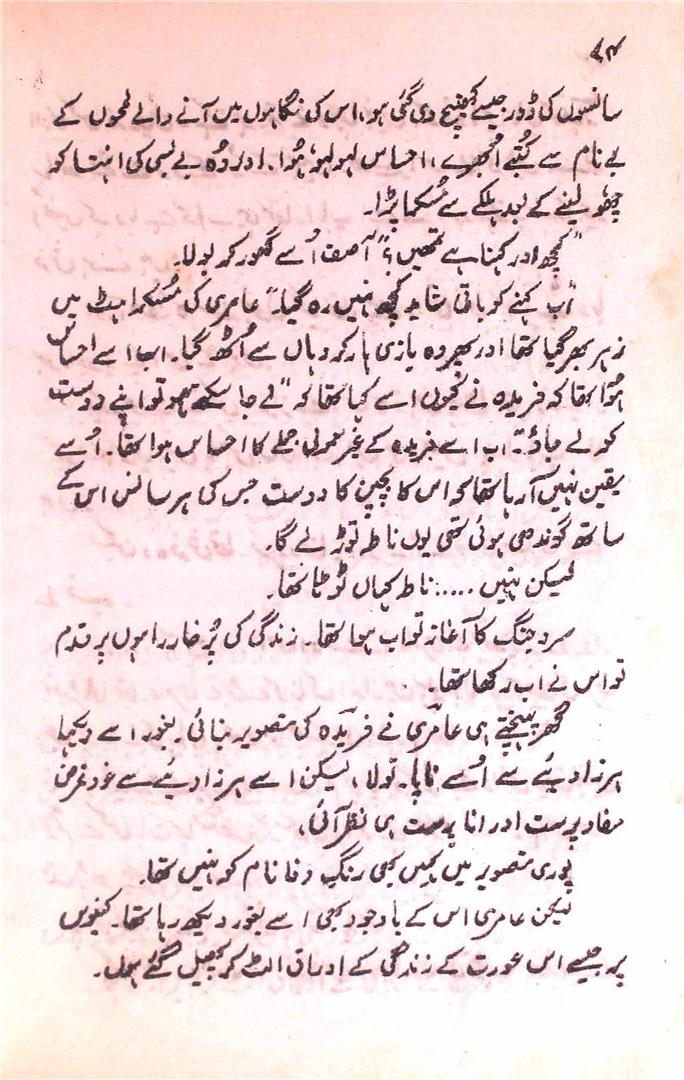 ۸۴
سانسوں کی ڈور جیسے کھینچ دی گئی ہو، اس کی نگاہوں میں آنے والے لمحوں کے
بے نام سے کُتبے اُبھرے، احساس لہو لہو ہُوا۔ اور وُہ بے بسی کی انتہا کو
چھُو لینے کے بعد ہلکے سے مُسکرا پڑا۔
"کچھ اور کہنا ہے تمھیں؟" آصف اُسے گھور کر بولا۔
"اب کہنے کو باقی شاید کچھ نہیں رہ گیا۔" عامری کی مُسکراہٹ میں
زہر بھر گیا تھا اور پھر وہ بازی ہار کر وہاں سے اُٹھ گیا۔ اب اسے احساس
ہُوا تھا کہ فریدہ نے کیوں اسے کہا تھا کہ "لے جا سکتے ہو تو اپنے دوست
کو لے جاؤ"۔ اب اسے فریدہ کے غیر معمولی جملے کا احساس ہوا تھا۔ اُسے
یقین نہیں آ رہا تھا کہ اس کا بچپن کا دوست جس کی ہر سانس اس کے
ساتھ گوندھی ہوئی تھی یوں ناطہ توڑ لے گا۔
لیکن نہیں ..... ناطہ کہاں ٹوٹا تھا۔
سرد جنگ کا آغاز تو اب ہوا تھا۔ زندگی کی پُرخار راہوں پر قدم
تو اس نے اب رکھا تھا۔
گھر پہنچتے ہی عامری نے فریدہ کی تصویر بنائی۔ بغور اسے دیکھا
ہر زاویے سے اُسے ناپا۔ تولا، لیکن اسے ہر زاویے سے خود غرض
مفاد پرست اور انا پرست ہی نظر آئی،
پوری تصویر میں کہیں بھی رنگِ وفا نام کو نہیں تھا۔
لیکن عامری اس کے باوجود بھی اسے بغور دیکھ رہا تھا۔ کینوس
پر جیسے اس عورت کے زندگی کے اوراق الٹ کر پھیل گئے ہوں۔